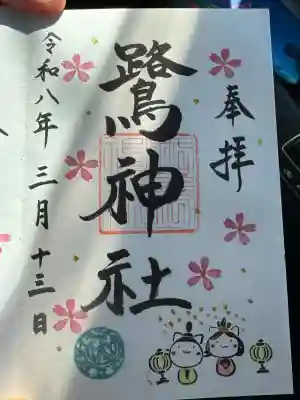 奉拝
鷺神社
令和八年 三月 十三日